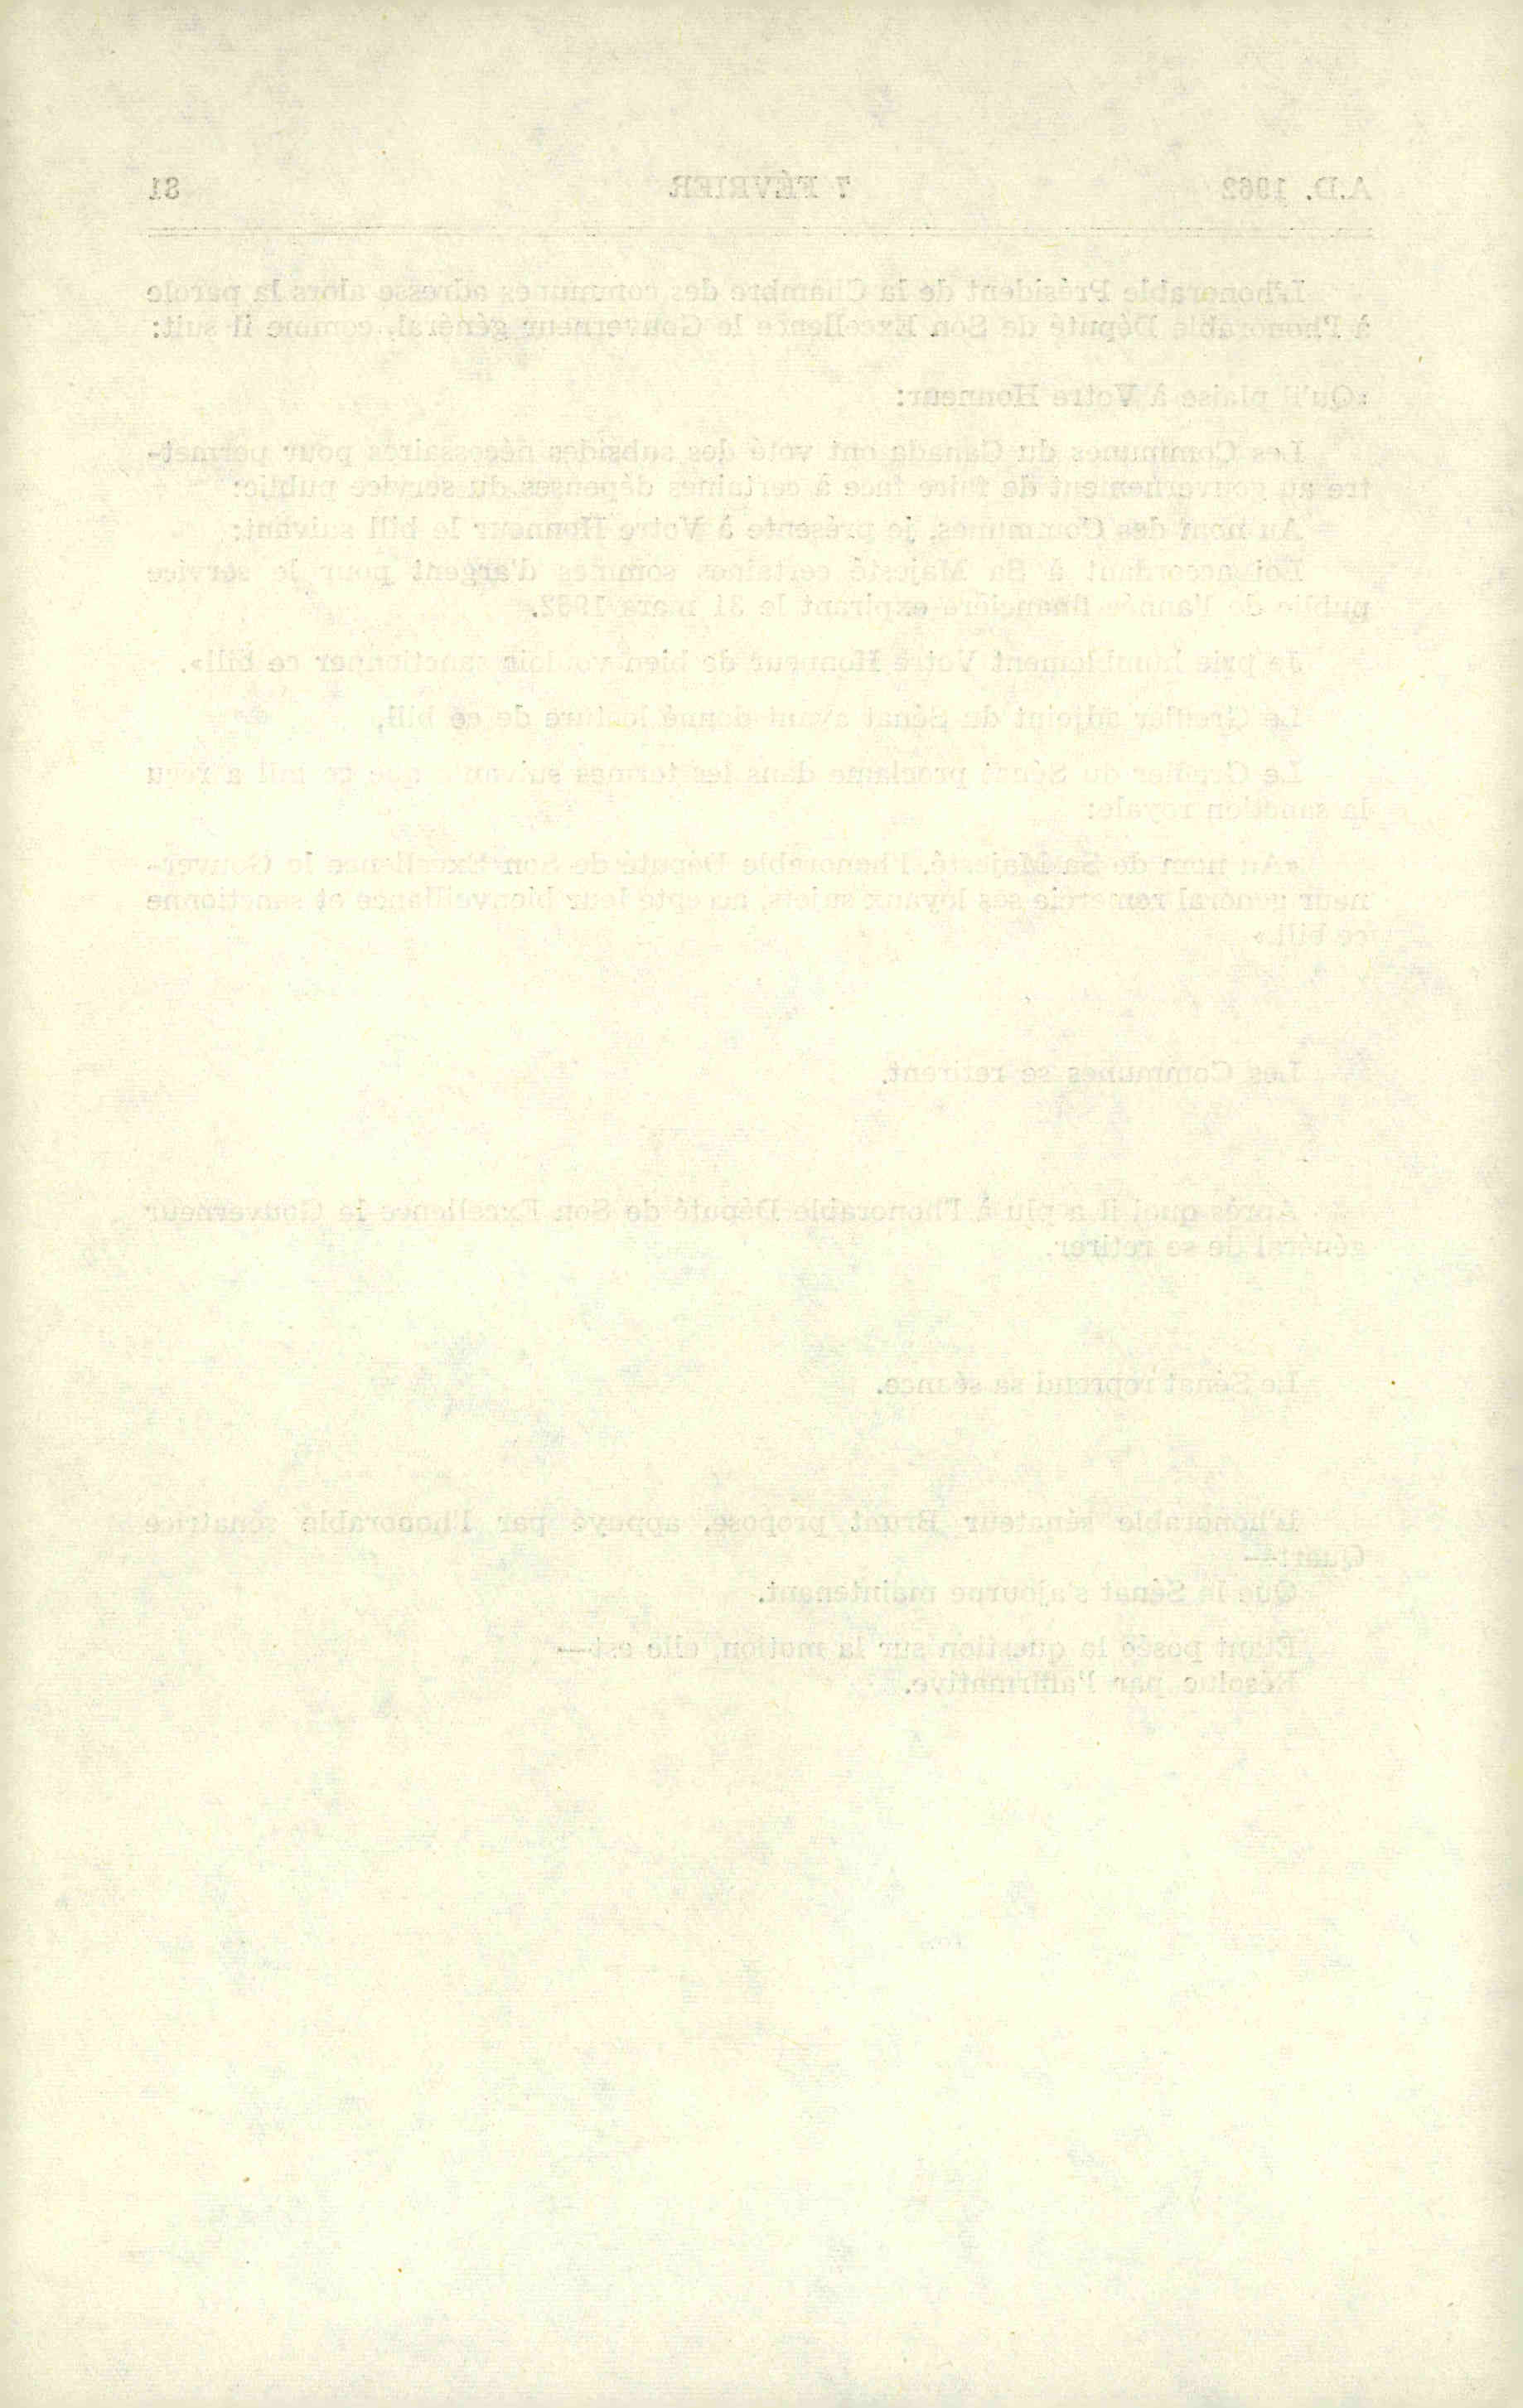 A.D. 1962 7 FÉVRIER 81
L'honorable Président de la Chambre des communes adresse alors la parole
à l'honorable Député de Son Excellence le Gouverneur général, comme il suit:
«Qu'il plaise à Votre Honneur:
Les Communes du Canada ont voté des subsides nécessaires pour permet-
tre au gouvernement de faire face à certaines dépenses du service public:
Au nom des Communes, je présente à Votre Honneur le bill suivant:
Loi accordant à Sa Majesté certaines sommes d'argent pour le service
public de l'année financière expirant le 31 mars 1962.
Je prie humblement Votre Honneur de bien vouloir sanctionner ce bill».
Le Greffier adjoint du Sénat ayant donné lecture de ce bill,
Le Greffier du Sénat proclame dans les termes suivants que ce bill a reçu
la sanction royale:
«Au nom de Sa Majesté, l'honorable Député de Son Excellence le Gouver-
neur général remercie ses loyaux sujets, accepte leur bienveillance et sanctionne
ce bill.»
Les Communes se retirent.
Après quoi il a plu à l'honorable Député de Son Excellence le Gouverneur
général de se retirer.
Le Sénat reprend sa séance.
L'honorable sénateur Brunt propose, appuyé par l'honorable sénatrice
Quart—
Que le Sénat s'ajourne maintenant.
Étant posée la question sur la motion, elle est—
Résolue par l'affirmative.